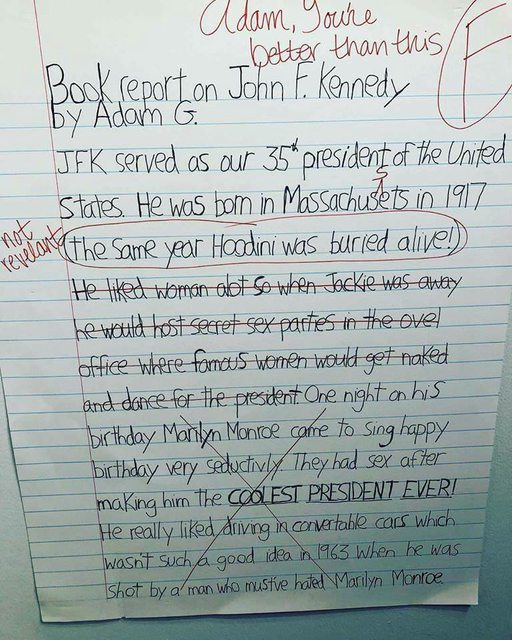 Adam, You're
better than this
F
Book report on John F. Kennedy
by Adam G.
JFK served as our 35th president of the United
States. He was born in Massachusets in 1917
t
not
revelant
(the same year Hoodini was buried alive!)
He liked woman alot so when Jackie was away
he would host secret sex parties in the ovel
office where famous women would get naked
and dance for the president One night on his
birthday Marilyn Monroe came to sing happy
birthday very seductivly. They had sex after
making him the COOLEST PRESIDENT EVER!
He really liked driving in convertable cars which
wasn't such a good idea in 1963 when he was
shot by a man who mustve hated Marilyn Monroe